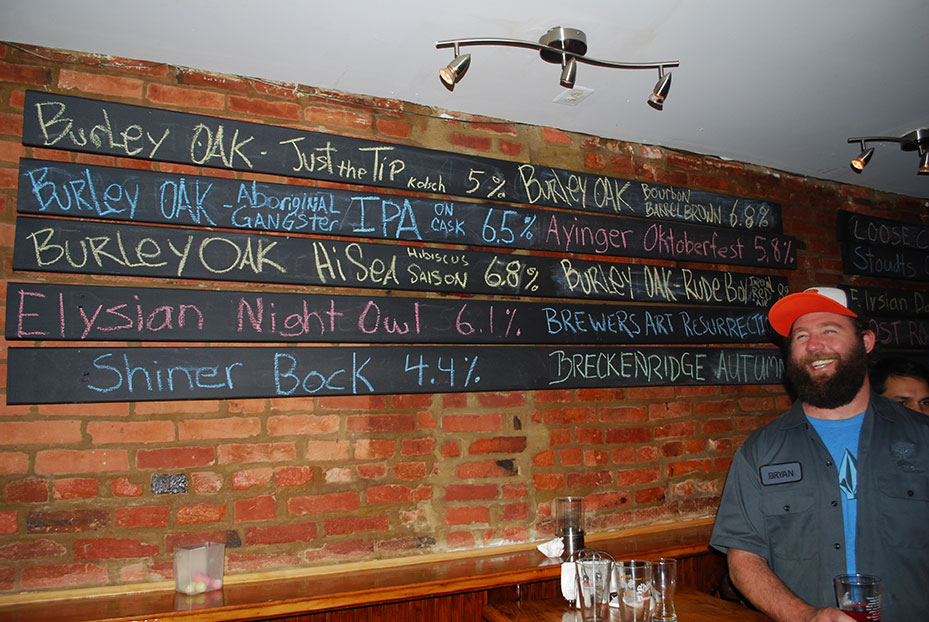 Burley OAK - Just the Tip Kolsch 5% Burley OAK Bourbon BARREL BROWN 6.8%
BURLEY OAK - Aboriginal GANGSter IPA ON CASK 6.5% Ayinger Oktoberfest 5.8%
BURLEY OAK Hi Sea Hibiscus SAISON 6.8% BURLEY OAK - Rude Boy
Elysian Night Owl 6.1% BREWERS ART RESURRECTI
Shiner Bock 4.4% BRECKENRIDGE AUTUMN
LOOSE
Stoudts
Elysian
BRYAN